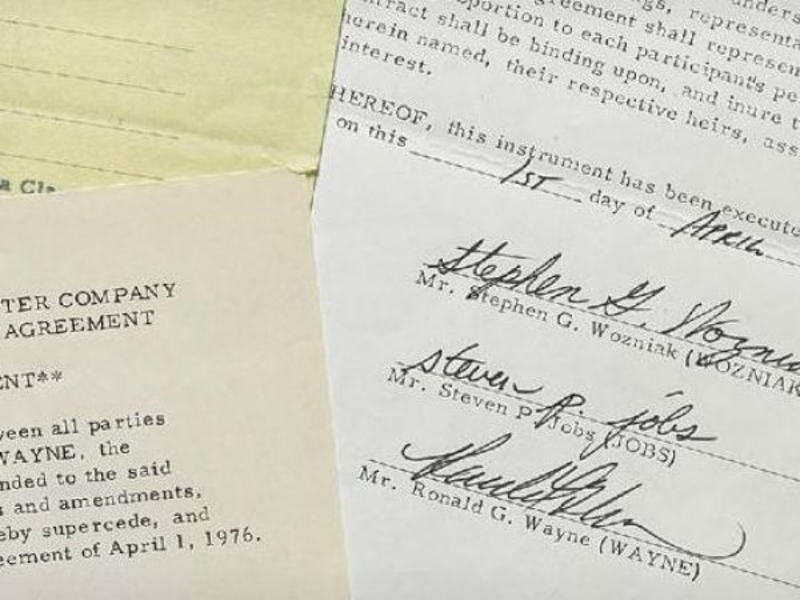 a Cla
TER COMPANY
AGREEMENT
ENT**
ween all parties
WAYNE, the
nded to the said
s and amendments,
eby supercede, and
eement of April 1, 1976.
ngs, representa
agreement shall represen
oportion to each participant's pe
ntract shall be binding upon, and inure t
herein named, their respective heirs, ass
interest.
HEREOF, this instrument has been execute
on this 1ST day of APRIL
Stephen G. Wozniak
Mr. Stephen G. Wozniak (WOZNIAK
steven p. jobs
Mr. Steven P. Jobs (JOBS)
Mr. Ronald G. Wayne (WAYNE)